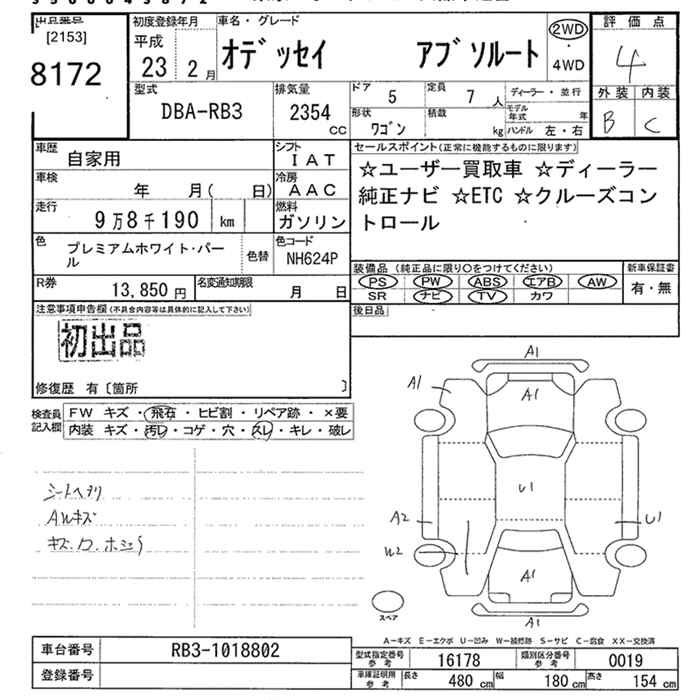 出品番号
[2153]
8172
初度登録年月
平成
23 2月
車名・グレード
オデッセイ アブソルート
2WD
・
4WD
評価点
4
外装 内装
B C
型式
DBA-RB3
排気量
2354
CC
ドア
5
定員
7人
ディーラー・並行
形状
ワゴン
積載
kg
モデル年式 年
ハンドル 左・右
車歴
自家用
シフト
IAT
車検
年 月( 日)
冷房
AAC
走行
9万8千190 km
燃料
ガソリン
色
プレミアムホワイト・パール
色替
色コード
NH624P
R券
13,850円
名変通知期限
月 日
セールスポイント(正常に機能するものに限ります)
☆ユーザー買取車 ☆ディーラー
純正ナビ ☆ETC ☆クルーズコン
トロール
装備品(純正品に限り○をつけてください)
PS PW ABS エアB AW
SR ナビ TV カワ
新車保証書
有・無
後日品
注意事項申告欄(不具合内容等は具体的に記入して下さい)
初出品
修復歴 有〔箇所 〕
検査員
記入欄
FW キズ・飛石・ヒビ割・リペア跡・×要
内装 キズ・汚レ・コゲ・穴・スレ・キレ・破レ
シートヘタリ
AWキズ
A1
A1
A1
U1
A2
U1
W2
A1
A1
スペア
A-キズ E-エクボ U-凹み W-補修跡 S-サビ C-腐食 XX-交換済
車台番号
RB3-1018802
登録番号
型式指定番号
参考
16178
類別区分番号
参考
0019
車庫証明用
参考
長さ 480cm 幅 180cm 高さ 154cm